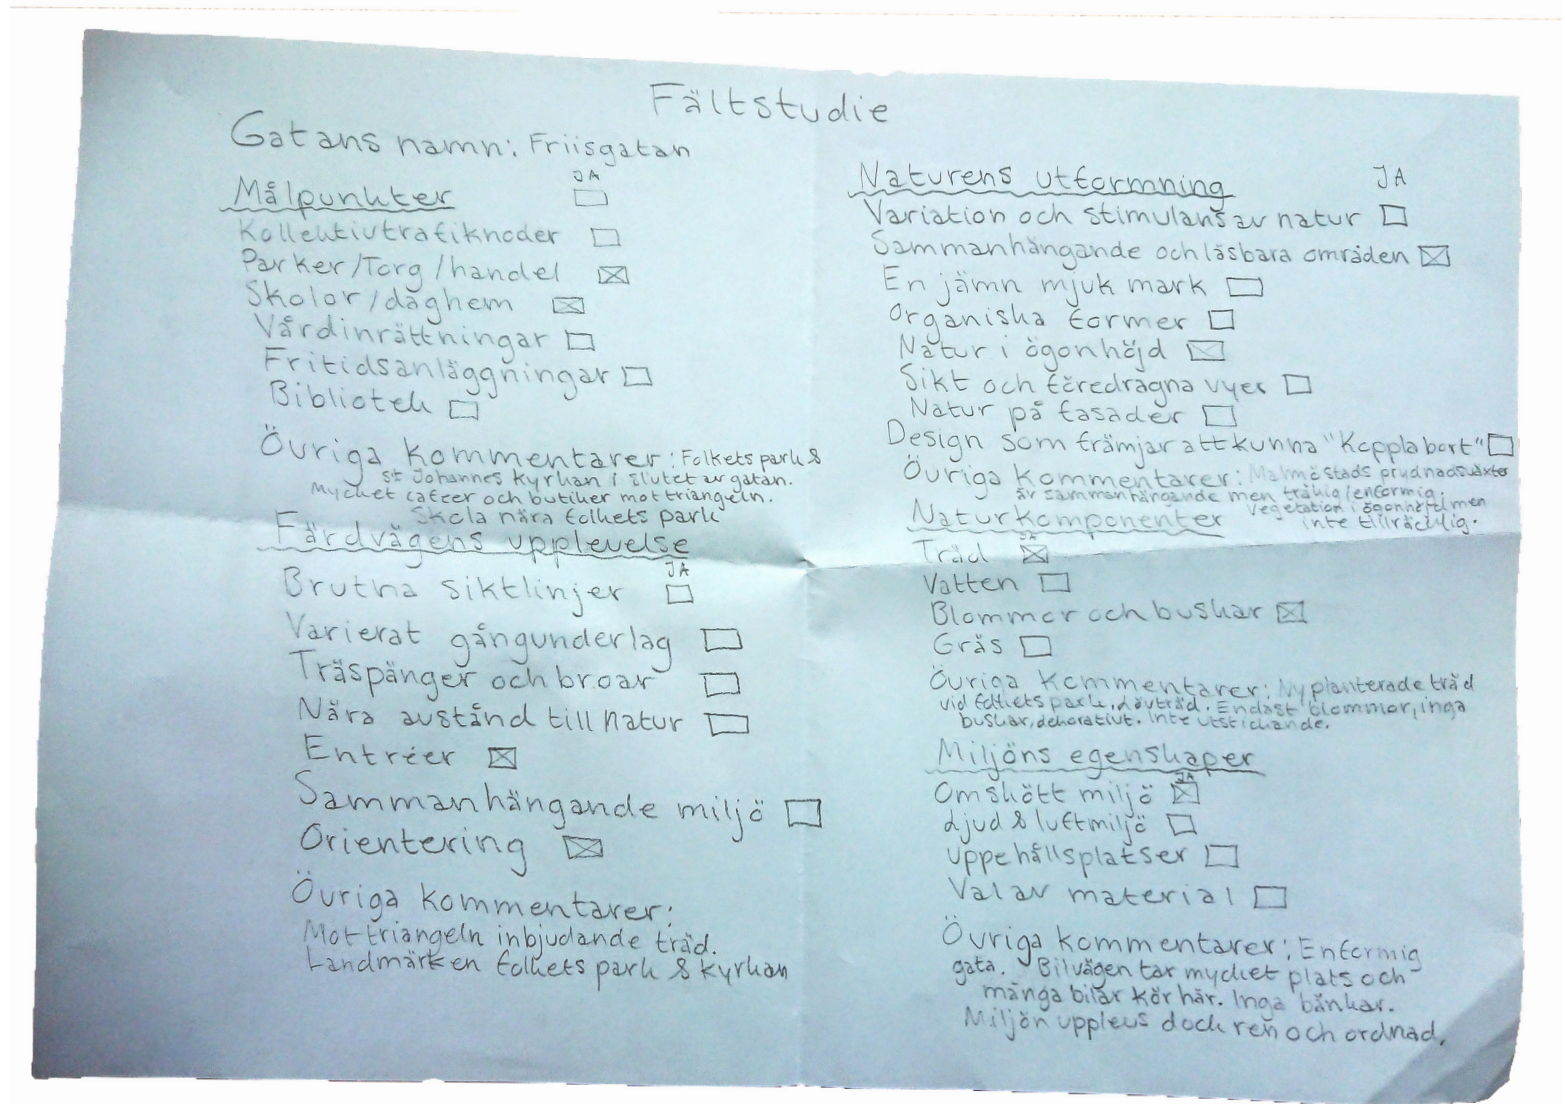 Fältstudie
Gatans namn: Friisgatan
JA
Målpunkter
Kollektivtrafiknoder
Parker/Torg/handel
Skolor/daghem
Vårdinrättningar
Fritidsanläggningar
Bibliotek
Övriga kommentarer: Folkets park &
st Johannes kyrkan i slutet av gatan.
Mycket cafeer och butiker mot triangeln.
Skola nära folkets park
Färdvägens upplevelse
JA
Brutna siktlinjer
Varierat gångunderlag
Träspånger och broar
Nära avstånd till natur
Entréer
Sammanhängande miljö
Orientering
Övriga kommentarer:
Mot triangeln inbjudande träd.
Landmärken folkets park & kyrkan
Naturens utformning JA
Variation och stimulans av natur
Sammanhängande och läsbara områden
En jämn mjuk mark
Organiska former
Natur i ögonhöjd
Sikt och föredragna vyer
Natur på fasader
Design som främjar att kunna "Koppla bort"
Övriga kommentarer: Malmö stads prydnadsväxter
är sammanhängande men tråkig/enformig.
Vegetation i ögonhöjd men
inte tillräcklig.
Naturkomponenter
JA
Träd
Vatten
Blommor och buskar
Gräs
Övriga kommentarer: Ny planterade träd
vid folkets park, Lövträd. Endast blommor, inga
buskar, dekorativt. Inte utstickande.
Miljöns egenskaper
JA
Omskött miljö
Ljud & luftmiljö
Uppehållsplatser
Val av material
Övriga kommentarer: Enformig
gata. Bilvägen tar mycket plats och
många bilar kör här. Inga bänkar.
Miljön upplevs dock ren och ordnad.